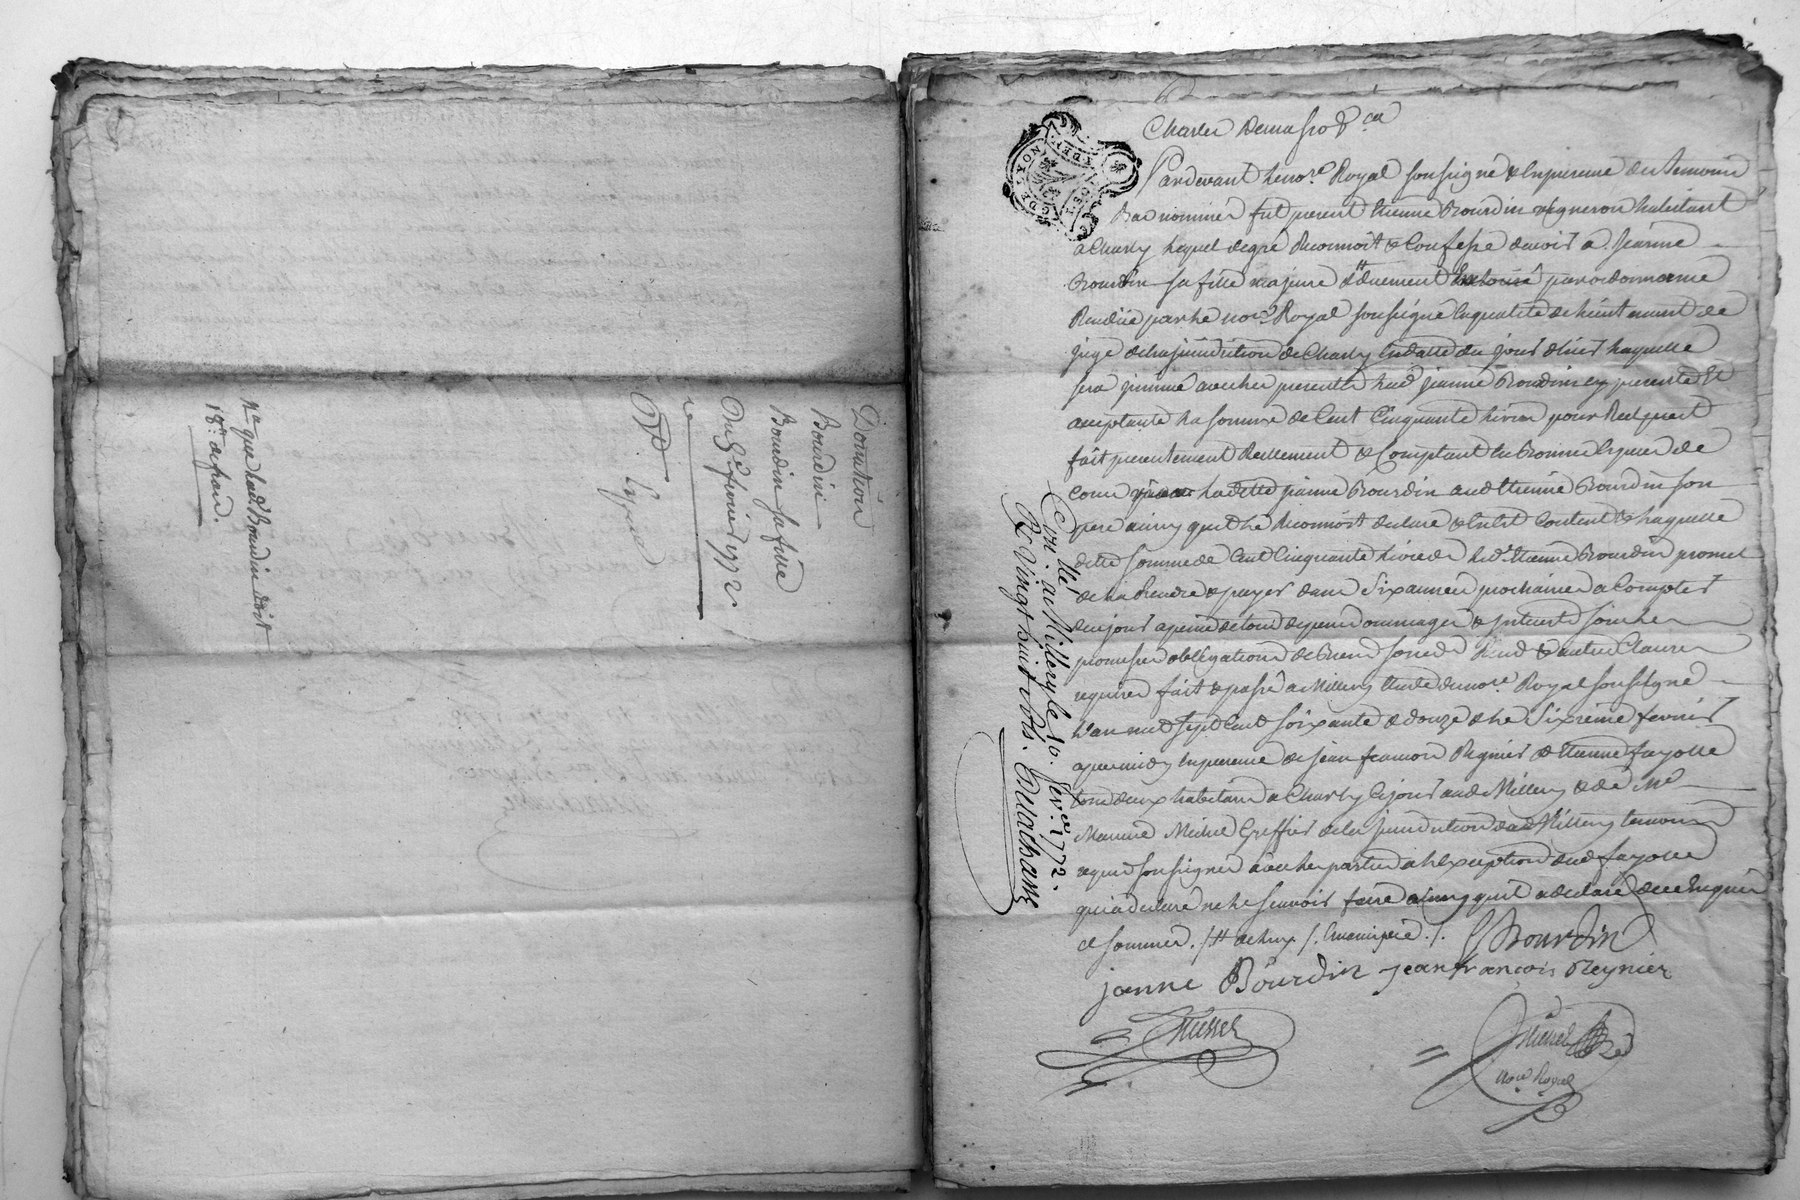 Donation
Bourdin
Bourdin sa fille
Du 6e fevrier 1772
Exped
Na que lad Bourdin doit
18s de
Pardevant le nore Royal soussigné & en presence des temoins
Bas nommés fut present Etienne Bourdin vigneron habitant
a Charly lequel de gré Reconnoit & Confesse devoir a Jeanne
Bourdin sa fille majeure duement par ordonnance
Rendüe par le nore Royal soussigné en qualité de Lieutenant de
juge de la jurisdiction de Charly en datte du jour d'hier laquelle
sera jointe avec les presentes lad jeanne Bourdin icy presente Et
acceptante la somme de Cent Cinquante livres pour Reel prest
fait presentement Reellement & Comptant en Bonnes Especes de
cours par ladette jeanne Bourdin aud Etienne Bourdin son
pere ainsy quil le Reconnoit declare & s'en tit Content & laquelle
dette somme de Cent Cinquante livres led Etienne Bourdin promet
de la Rendre & payer dans Six années prochaines a Compter
du jour a peine de tous depens dommages & interets sous les
promesses obligations de Biens soumissions Rend & autres Clauses
requises fait & passé a Millery Etude du nore Royal soussigné
L'an mil sept Cent soixante & douze & le Sixieme fevrier
apres midy en presence de jean francois Reynier & Etienne fayolle
tous deux habitans a Charly Ce jour aud Millery & de Me
Michel Greffier de la jurisdiction dud Millery temoins
requis soussignés avec les parties a l'exception dud fayolle
qui a declaré ne le scavoir faire ainsy quil a declaré de ce Enquis
& sommé. /# /. Emancipée ./. E Bourdin
janne Bourdin jean francois Reynier
nore Royal
Con.lle a Millery le 10. fevr. 1772.
R. Vingt huit sols.